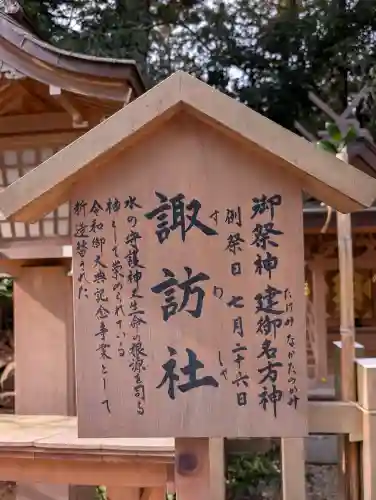 御祭神 建御名方神
たけみ なかたのかみ
例祭日 七月二十六日
諏訪社
す わ しゃ
水の守護神大生命の根源を司る
神として崇められている
令和御大典記念事業として
造替された